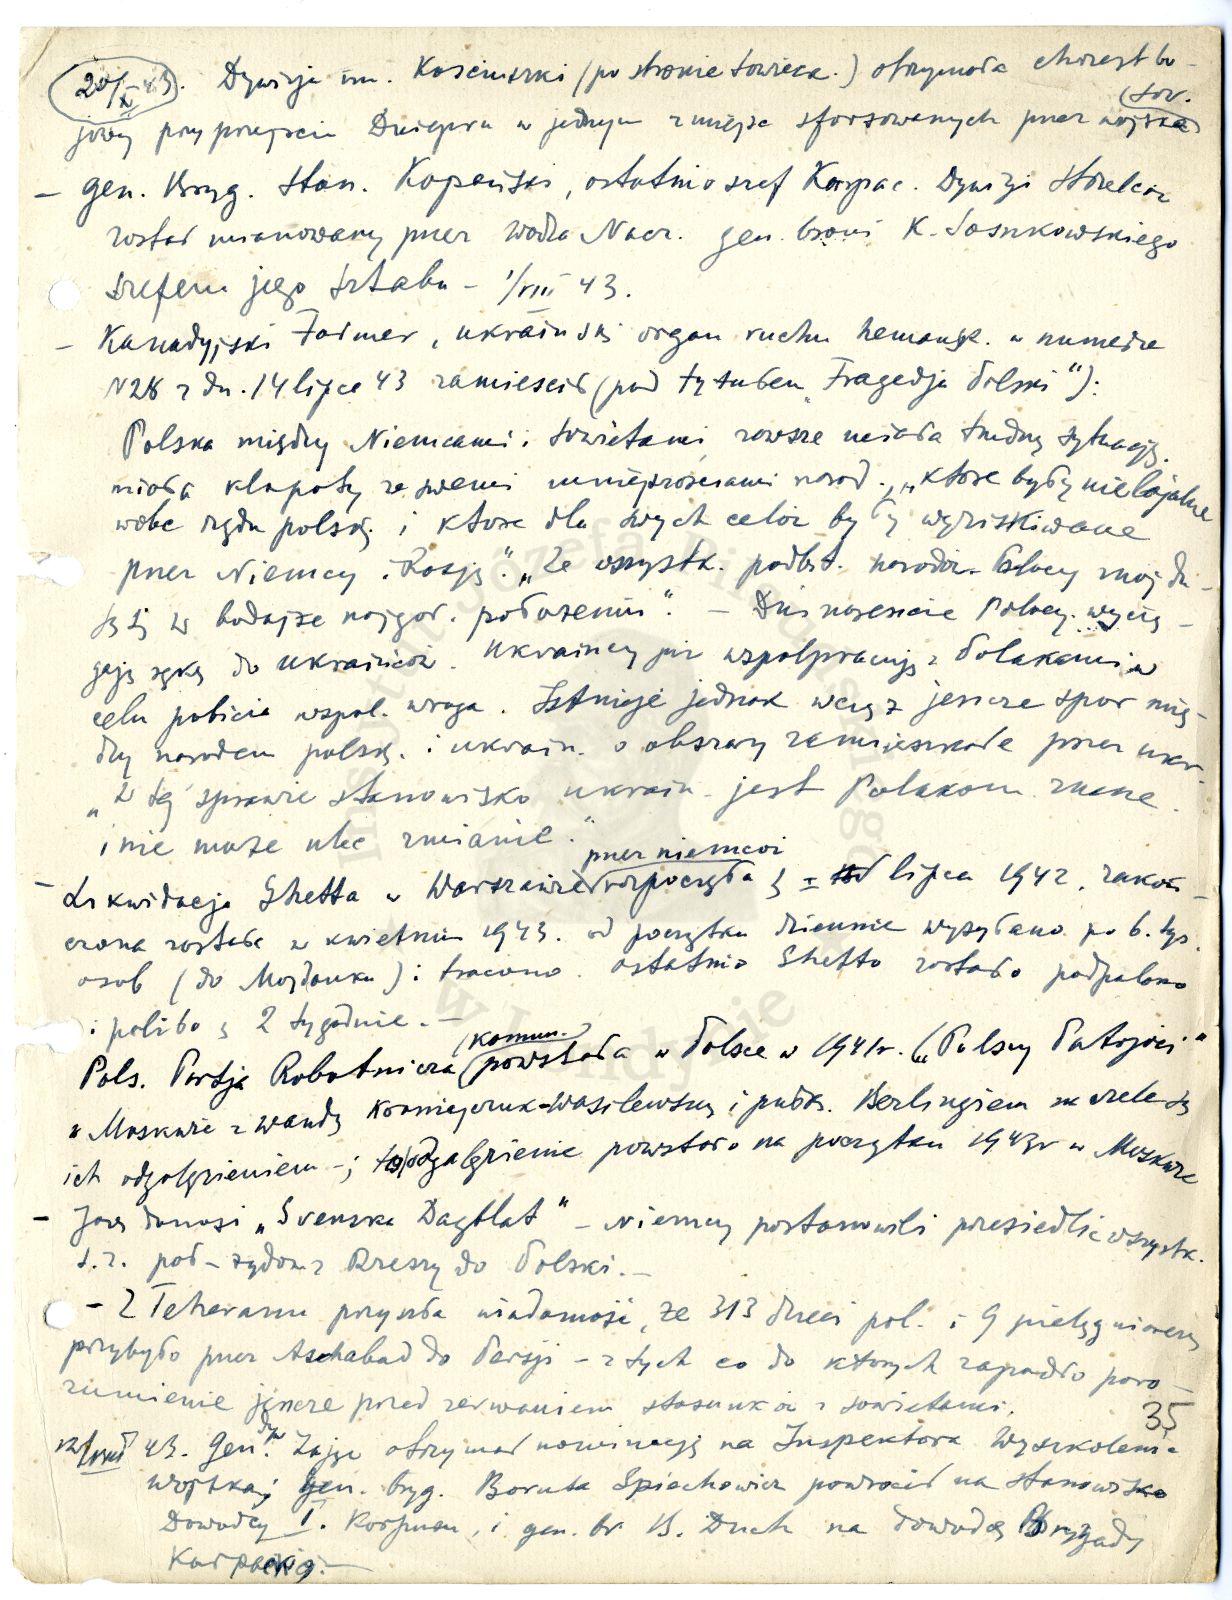 20/X 43. Dywizja im. Kościuszki (po stronie sowieck.) otrzymała chrzest bo-
jowy przy przejściu Dniepru w jednym z miejsc sforsowanych przez (sov. wojska
- gen. bryg. Stan. Kopański, ostatnio szef Karpac. Dywizji Strzelców
został mianowany przez Wodza Nacz. gen. broni K. Sosnkowskiego
szefem jego sztabu - 1/VIII 43.
- Kanadyjski Farmer, ukraiński organ ruchu hemańsk. w numerze
N28 z dn. 14 lipca 43 zamieścił (pod tytułem "Tragedja Polski"):
Polska między Niemcami i Sowietami zawsze miała trudną sytuację.
miała kłopoty ze swemi mniejszościami narod., "które były nielojalne
wobec rządu polsk. i które dla swych celów były wyzyskiwane
przez Niemcy i Rosję". "Ze wszystk. podbit. narodów Polacy znajdu-
ją się w bodajże najgor. położeniu". - Dziś nareszcie Polacy wycią-
gają rękę do ukraińców. Ukraińcy już współpracują z Polakami w
celu pobicia wspól. wroga. Istnieje jednak wciąż jeszcze spór mię-
dzy narodem polsk. i ukrain. o obszary zamieszkałe przez ukr.
"W tej sprawie stanowisko ukrain. jest Polakom znane
i nie może ulec zmianie."
- Likwidacja Ghetta w Warszawie (przez niemców rozpoczęta z lipca 1942, zakoń-
czona została w kwietniu 1943. od początku dziennie wysyłano po 6. tys.
osób (do Majdanku) i tracono. ostatnio Ghetto zostało podpalone
i paliło się 2 tygodnie. -
Pols. Partja Robotnicza (komun.) powstała w Polsce w 1941r. ("Polscy Patrjoci"
w Moskwie z Wandą Korniejczuk-Wasilewską i pułk. Berlingiem na czele są
ich odgałęzieniem -; to odgałęzienie powstało na początku 1943r w Moskwie
- Jak donosi "Svenska Dagblat" - Niemcy postanowili przesiedlić wszystk.
t. z. pół-żydów z Rzeszy do Polski. -
- Z Teheranu przyszła wiadomość, że 313 dzieci pol. i 9 pielęgniarek
przybyło przez Aschabad do Persji - z tych co do których zapadło poro-
zumienie jeszcze przed zerwaniem stosunków z sowietami.
35
VIII 43. Gen. dyw. Zając otrzymał nominację na Inspektora Wyszkolenia
wojska; gen. bryg. Boruta Spiechowicz powrócił na stanowisko
Dowódcy I. Korpusu, i gen. br B. Duch na dowódcę Brygady
Karpackiej. -